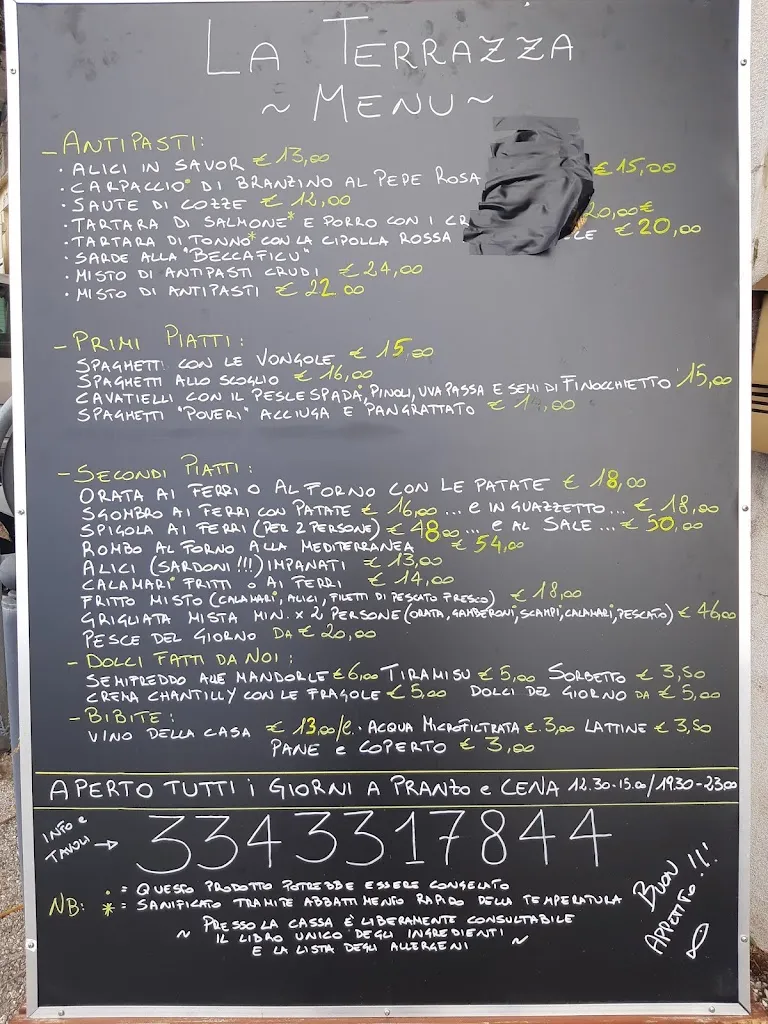 LA TERRAZZA
~ MENU ~
- ANTIPASTI:
· ALICI IN SAVOR € 13,00
· CARPACCIO* DI BRANZINO AL PEPE ROSA € 15,00
· SAUTE DI COZZE € 12,00
· TARTARA DI SALMONE* E PORRO CON I CR 20,00€
· TARTARA DI TONNO* CON LA CIPOLLA ROSSA LE € 20,00
· SARDE ALLA "BECCAFICU"
· MISTO DI ANTIPASTI CRUDI € 24,00
· MISTO DI ANTIPASTI € 22 00
- PRIMI PIATTI:
SPAGHETTI CON LE VONGOLE € 15,00
SPAGHETTI ALLO SCOGLIO € 16,00
CAVATIELLI CON IL PESCE SPADA, PINOLI, UVA PASSA E SEMI DI FINOCCHIETTO 15,00
SPAGHETTI "POVERI" ACCIUGA E PANGRATTATO €
- SECONDI PIATTI:
ORATA AI FERRI O AL FORNO CON LE PATATE € 18,00
SGOMBRO AI FERRI CON PATATE € 16,00 ... e IN GUAZZETTO ... € 18,00
SPIGOLA AI FERRI (PER 2 PERSONE) € 48,00 ... e AL SALE ... € 50,00
ROMBO AL FORNO ALLA MEDITERRANEA € 54,00
ALICI (SARDONI !!!) IMPANATI € 13,00
CALAMARI° FRITTI O AI FERRI € 14,00
FRITTO MISTO (CALAMARI, ALICI, FILETTI DI PESCATO FRESCO) € 18,00
GRIGLIATA MISTA MIN. x 2 PERSONE (ORATA, GAMBERONI, SCAMPI, CALAMARI, PESCATO) € 46,00
PESCE DEL GIORNO DA € 20,00
- DOLCI FATTI DA NOI:
SEMIFREDDO ALLE MANDORLE € 6,00 TIRAMISU € 5,00 SORBETTO € 3,50
CREMA CHANTILLY CON LE FRAGOLE € 5,00 DOLCI DEL GIORNO DA € 5,00
- BIBITE:
VINO DELLA CASA € 13,00/l. · ACQUA MICROFILTRATA € 3,00 LATTINE € 3,50
PANE e COPERTO € 3,00
APERTO TUTTI i GIORNI A PRANZO e CENA 12.30-15.00/19.30-23,00
INFO e TAVOLI → 3343317844
NB: · = QUESTO PRODOTTO POTREBBE ESSERE CONGELATO
* = SANIFICATO TRAMITE ABBATTIMENTO RAPIDO DELLA TEMPERATURA
~ PRESSO LA CASSA E' LIBERAMENTE CONSULTABILE
IL LIBRO UNICO DEGLI INGREDIENTI
E LA LISTA DEGLI ALLERGENI ~
BUON
APPETITO !!!